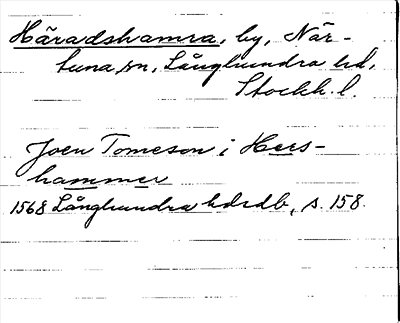 Häradshamra, by, När-
tuna sn, Långhundra hd,
Stockh. l.
Joen Tomeson i Hers-
hammer
1568 Långhundra hdrdb, s. 158.